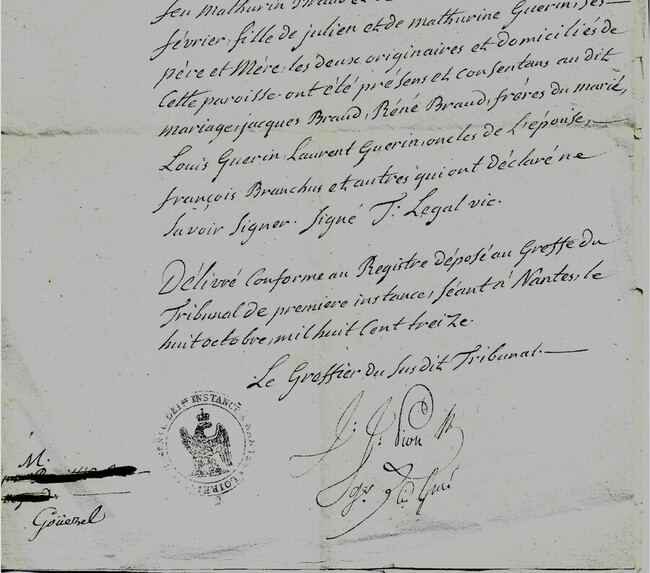 feu Mathurin Braud et
février fille de julien et de mathurine Guerin, ses
père et Mère, les deux originaires et domiciliés de
Cette paroisse ont été présens et consentans au dit
mariage, jacques Braud, Réné Braud, fréres du marié,
Louis Guerin, Laurent Guerin, oncles de L'épouse,
françois Branchus et autres qui ont déclaré ne
Savoir Signer. Signé T. Legal vic.
Délivré Conforme au Registre déposé au Greffe du
Tribunal de premiere instance, Séant à Nantes, le
huit octobre, mil huit Cent treize.
Le Greffier du Susdit Tribunal.
INSTANCE
LOIRE
M.
Goüezel